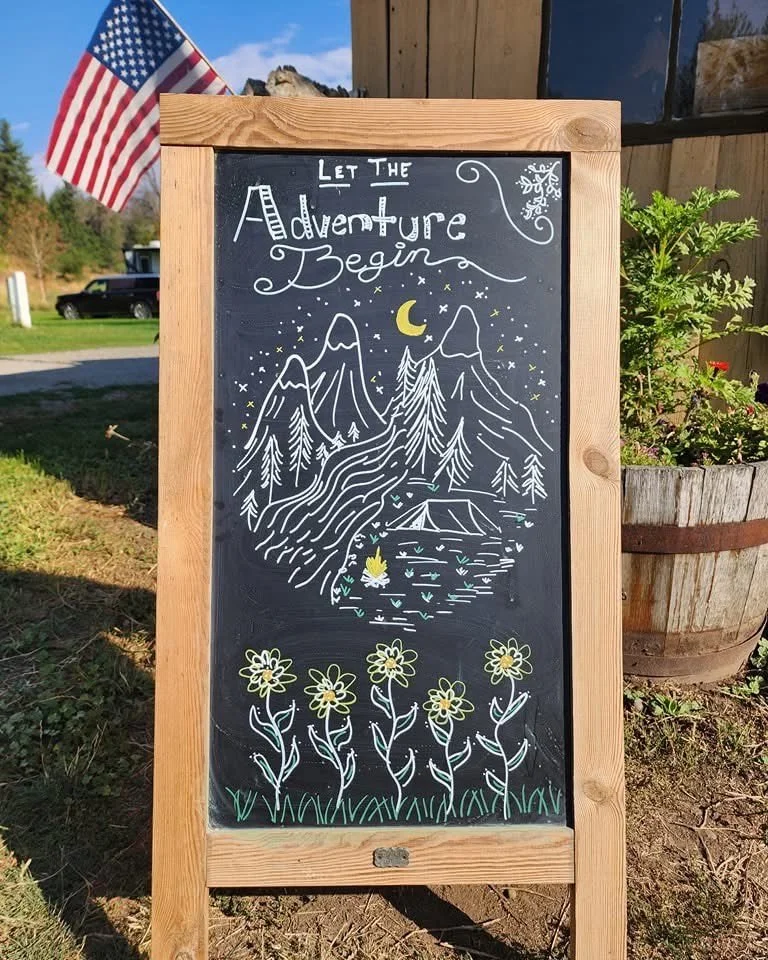 LET THE
Adventure
Begin